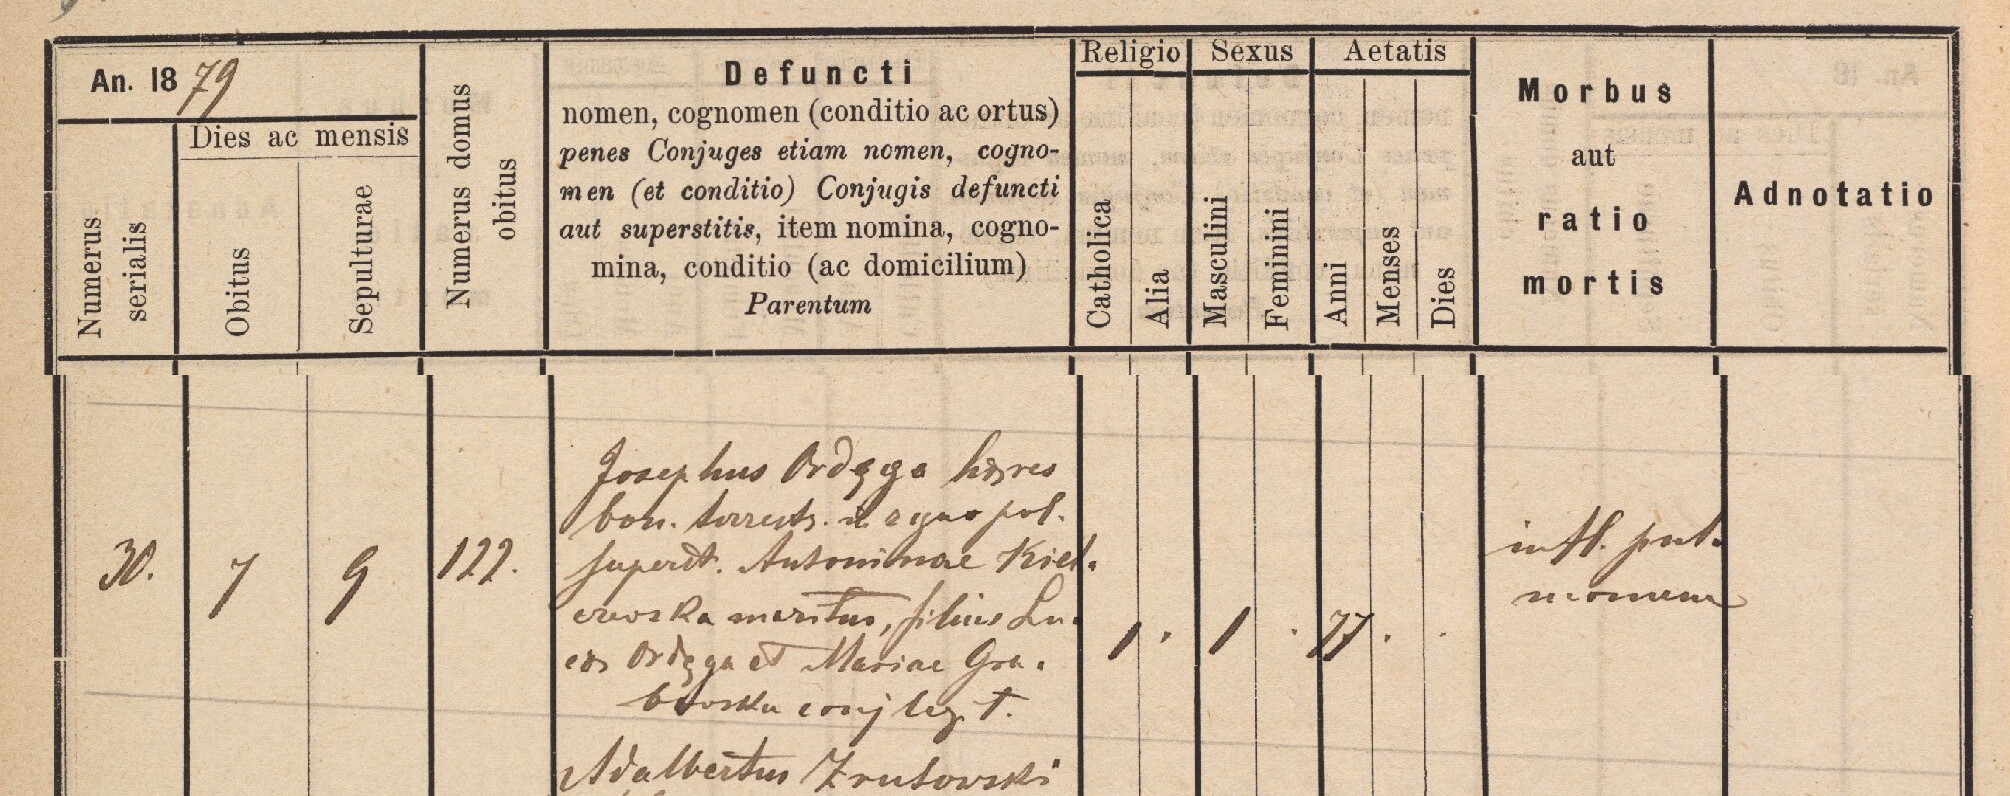 An. 1879
Numerus serialis
Dies ac mensis
Obitus
Sepulturae
Numerus domus obitus
Defuncti
nomen, cognomen (conditio ac ortus)
penes Conjuges etiam nomen, cogno-
men (et conditio) Conjugis defuncti
aut superstitis, item nomina, cogno-
mina, conditio (ac domicilium)
Parentum
Religio
Catholica
Alia
Sexus
Masculini
Feminini
Aetatis
Anni
Menses
Dies
Morbus
aut
ratio
mortis
Adnotatio
30. 7 9 122.
Josephus Ordęga hæres
bon. terrestr. in regno pol.
superst. Antoninae Kied.
erowska maritus, filius Lu.
cas Ordęga et Mariae Gra.
bowska conj leg. t.
1 . 1 . 77 . .
infl. pul.
monum
Adalbertus Zrutowski